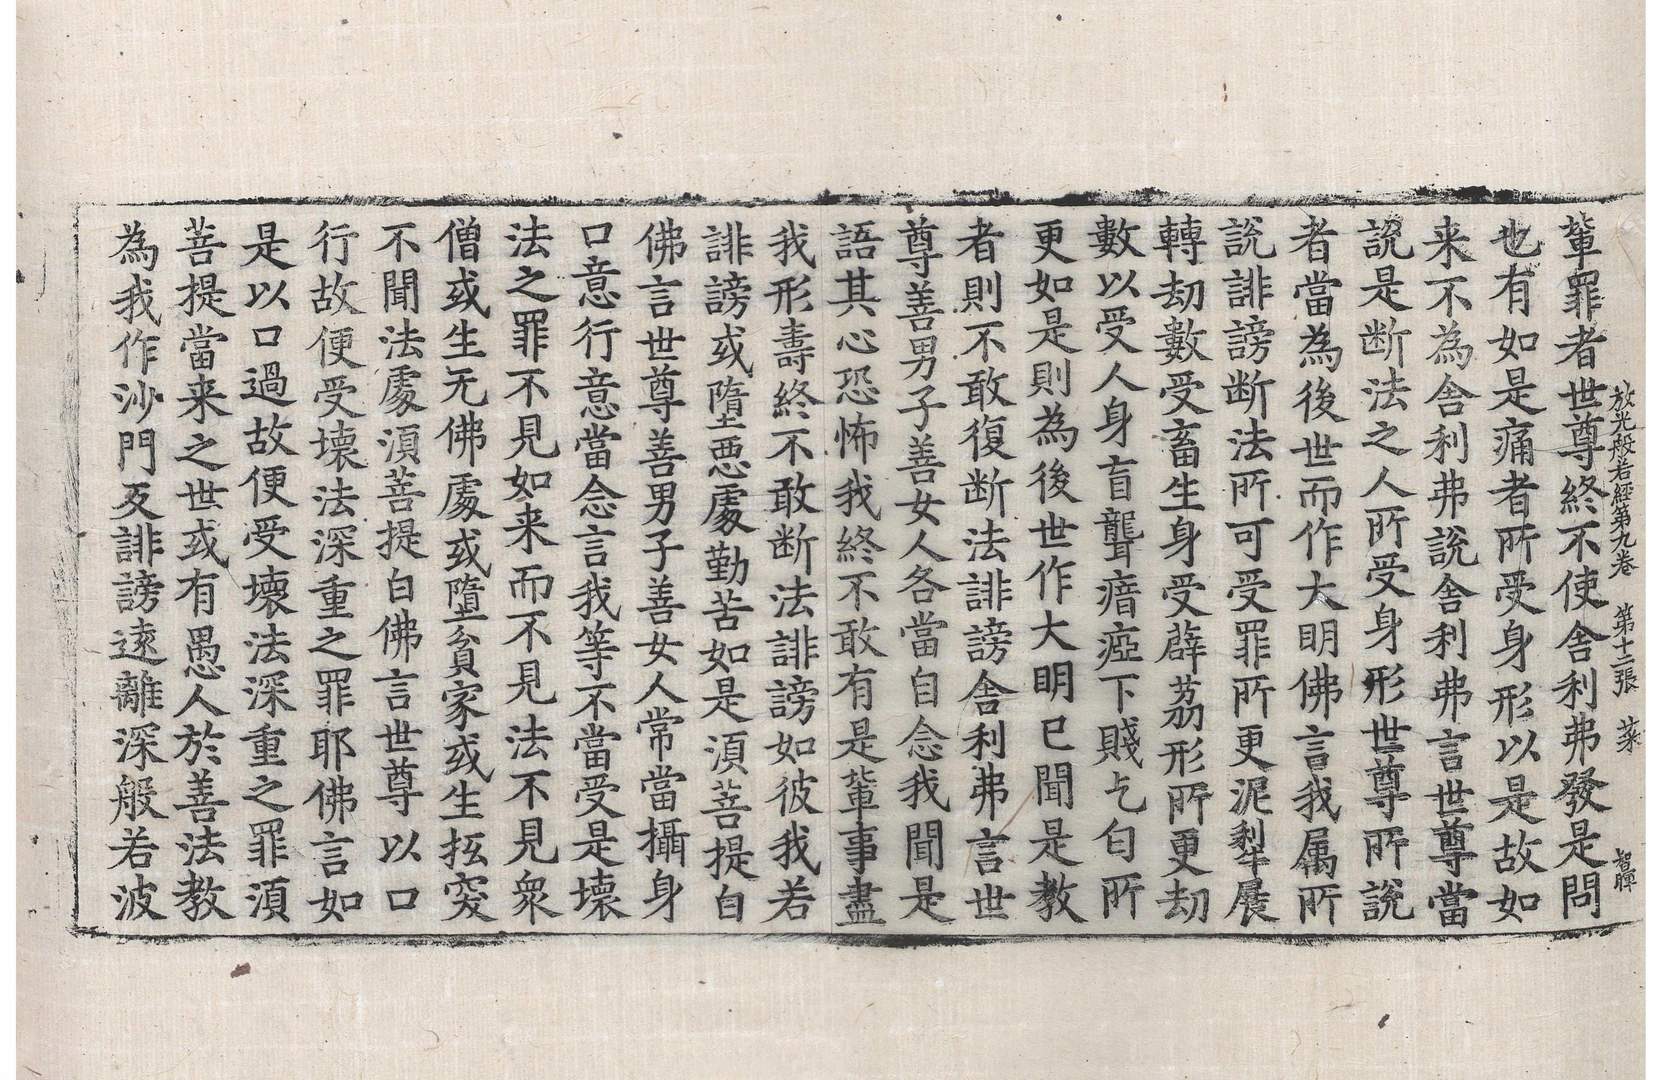 放光般若經第九卷 第十二張 菜 智暉
輩罪者世尊終不使舎利弗發是問
也有如是痛者所受身形以是故如
来不為舎利弗說舎利弗言世尊當
說是断法之人所受身形世尊所說
者當為後世而作大明佛言我属所
說誹謗断法所可受罪所更泥犁展
轉劫數受畜生身受薜茘形所更劫
數以受人身盲聾瘖瘂下賤乞匂所
更如是則為後世作大明已聞是教
者則不敢復断法誹謗舎利弗言世
尊善男子善女人各當自念我聞是
語其心恐怖我終不敢有是輩事盡
我形壽終不敢断法誹謗如彼我若
誹謗或墮惡處勤苦如是湏菩提白
佛言世尊善男子善女人常當攝身
口意行意當念言我等不當受是壊
法之罪不見如来而不見法不見衆
僧或生无佛處或墮貧家或生㧢突
不聞法處湏菩提白佛言世尊以口
行故便受壊法深重之罪耶佛言如
是以口過故便受壊法深重之罪湏
菩提當来之世或有愚人於善法教
為我作沙門及誹謗遠離深般若波